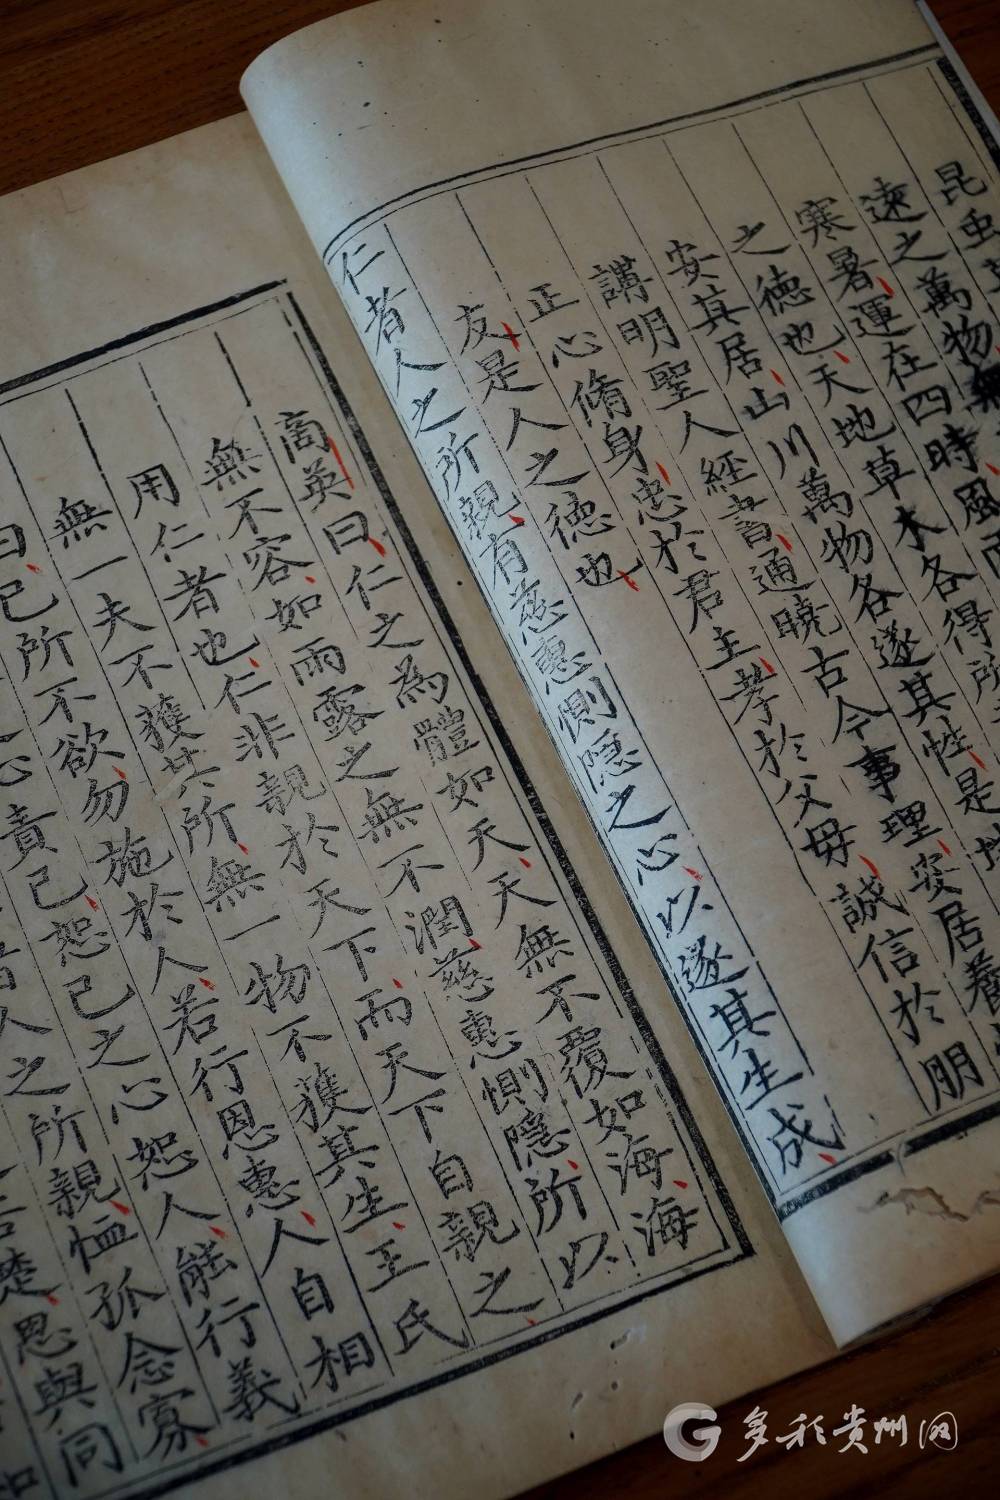 昆虫
遠之萬物無
寒暑運在四時風雨
之德也天地草木各得所
安其居山川萬物各遂其性是
講明聖人經書通曉古今事理安居養
正心脩身忠於君主孝於父母誠信於朋
友是人之德也
仁者人之所親有慈惠惻隱之心以遂其生成
高英曰仁之為體如天天無不覆如海海
無不容如雨露之無不潤慈惠惻隱所以
用仁者也仁非親於天下而天下自親之
無一夫不獲其所無一物不獲其生王氏
曰己所不欲勿施於人若行恩惠人自相
心責己恕己之心恕人能行義
者人之所親恤孤念寡
楚恩與同
多彩贵州网